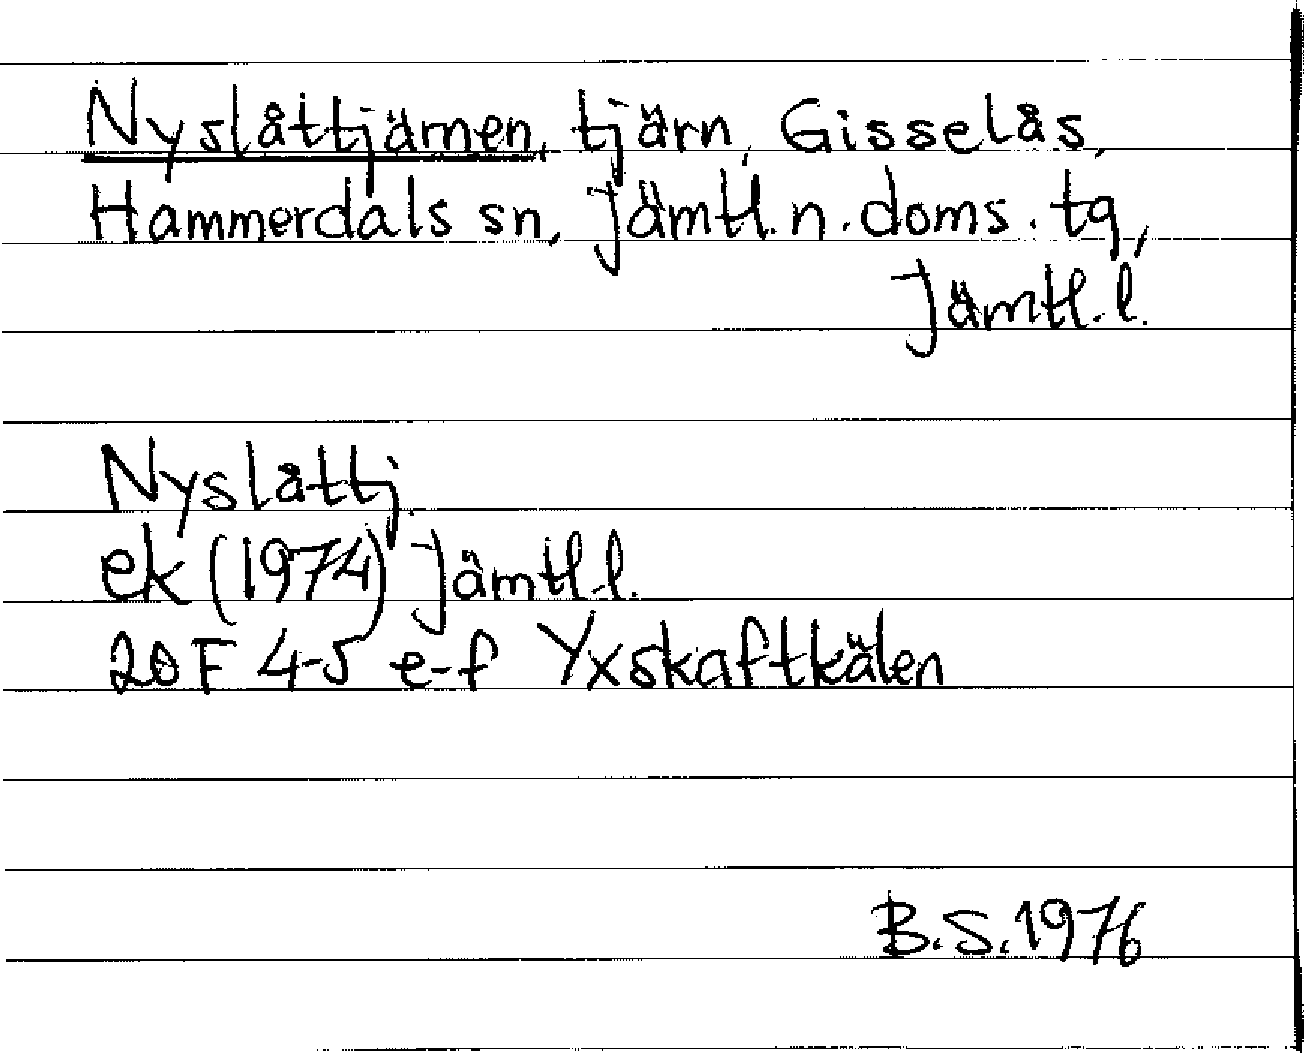 Nyslåttjärnen, tjärn, Gisselås,
Hammerdals sn, Jämtl. n. doms. tg,
Jämtl. l.
Nyslåttj.
ek (1974) Jämtl. l.
20F 4-5 e-f Yxskaftkälen
B.S. 1976